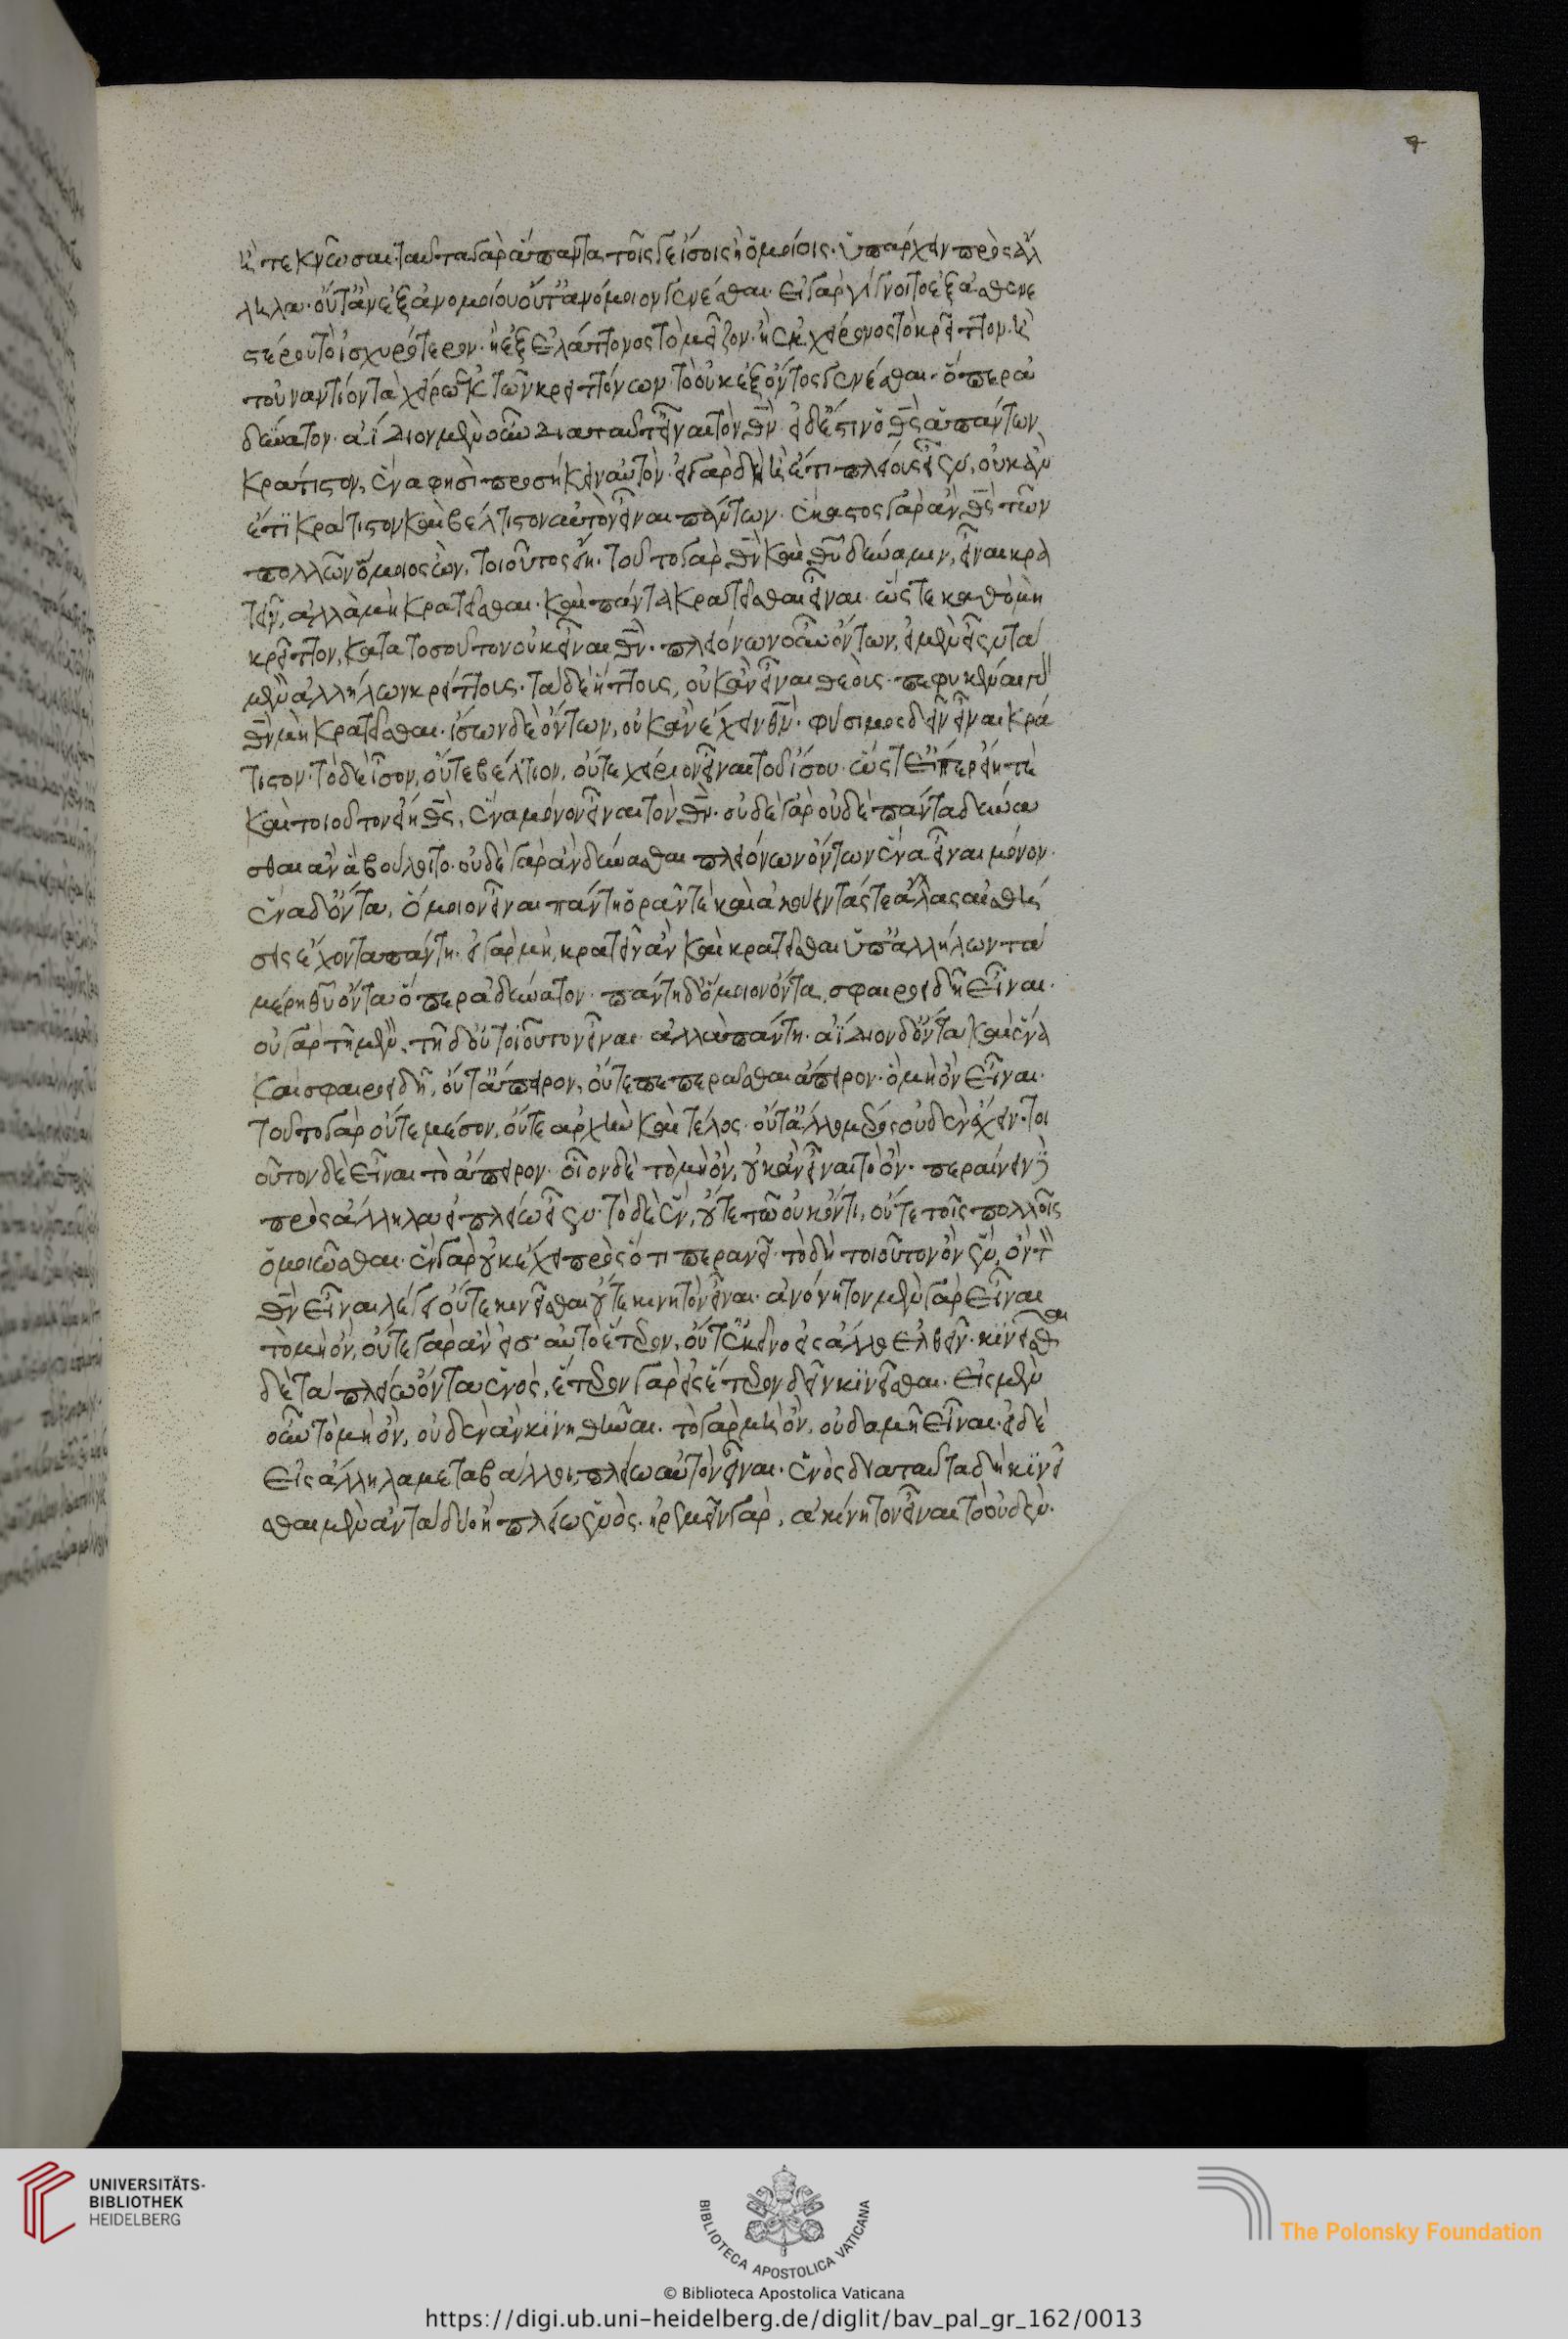 ἢ τεκνῶσαι. ταῦτα γὰρ ἅπαντα τοῖς γε ἴσοις ἢ ὁμοίοις. ὑπάρχειν πρὸς ἄλ
ληλα. οὔτ' ἂν ἐξ ἀνομοίου οὔτ' ἀνόμοιον γενέσθαι. εἰ γὰρ γίγνοιτο ἐξ ἀσθενε
στέρου τὸ ἰσχυρότερον. ἢ ἐξ ἐλάττονος τὸ μεῖζον. ἢ ἐκ χείρονος τὸ κρεῖττον. ἢ
τοὐναντίον τὰ χείρω ἐκ τῶν κρειττόνων. τὸ οὐκ ἐξ ὄντος γενέσθαι. ὅπερ ἀ
δύνατον. ἀΐδιον μὲν οὖν διὰ ταῦτ' εἶναι τὸν θν. εἰ δ' ἔστιν ὁ θς ἁπάντων
κράτιστον, ἕνα φησὶ προσήκειν αὐτὸν. εἰ γὰρ δύ ἢ ἔτι πλείους εἶεν, οὐκ ἂν
ἔτι κράτιστον καὶ βέλτιστον αὐτὸν εἶναι πάντων. ἕκαστος γὰρ ἂν θς τῶν
πολλῶν ὅμοιος ὢν, τοιοῦτος εἴη. τοῦτο γὰρ θν καὶ θυ δύναμιν, εἶναι κρα
τεῖν, ἀλλὰ μὴ κρατεῖσθαι. καὶ πάντα κρατεῖσθαι εἶναι. ὥστε καθὸ μὴ
κρεῖττον, κατὰ τοσοῦτον οὐκ εἶναι θν. πλειόνων οὖν ὄντων, εἰ μὲν εἶεν τὰ
μὲν ἀλλήλων κρείττους. τὰ δὲ ἥττους, οὐκ ἂν εἶναι θεοὺς. πεφυκέναι γὰρ
θν μὴ κρατεῖσθαι. ἴσων δὲ ὄντων, οὐκ ἂν ἔχειν θν. φύσιν δεῖν εἶναι κρά
τιστον. τὸ δὲ ἴσον, οὔτε βέλτιον, οὔτε χεῖρον εἶναι τοῦ ἴσου. ὥστ' εἴπερ εἴη τὲ
καὶ τοιοῦτον εἴη θς, ἕνα μόνον εἶναι τὸν θν. οὐδὲ γὰρ οὐδὲ πάντα δύνα
σθαι ἂν ἃ βούλοιτο. οὐδὲ γὰρ ἂν δύνασθαι πλειόνων ὄντων ἕνα εἶναι μόνον.
ἕνα δ' ὄντα, ὅμοιον εἶναι πάντη ὁρᾶν τὲ καὶ ἀκούειν τάς τε ἄλλας αἰσθή
σεις ἔχοντα πάντη. εἰ γὰρ μὴ, κρατεῖν ἂν καὶ κρατεῖσθαι ὑπ' ἀλλήλων τὰ
μέρη θυ ὄντα ὅπερ ἀδύνατον. πάντη δ' ὅμοιον ὄντα, σφαιροειδῆ εἶναι.
οὐ γὰρ τῆ μὲν, τῆ δ' οὐ τοιοῦτον εἶναι ἀλλὰ πάντη. ἀΐδιον δ' ὄντα καὶ ἕνα
καὶ σφαιροειδῆ, οὔτ' ἄπειρον, οὔτε πεπεράσθαι ἄπειρον. ὃ μὴ ὂν εἶναι.
τοῦτο γὰρ οὔτε μέσον, οὔτε ἀρχὴν καὶ τέλος. οὔτ' ἄλλο μέρος οὐδὲν ἔχειν. τοι
οῦτον δὲ εἶναι τὸ ἄπειρον. οἷον δὲ τὸ μὴ ὂν, οὐκ ἂν εἶναι τὸ ὄν. περαίνειν δὲ
πρὸς ἄλληλα εἰ πλείω εἶεν. τὸ δὲ ἓν, οὔτε τῶ οὐκ ὄντι, οὔτε τοῖς πολλοῖς
ὁμοιῶσθαι. ἓν γὰρ οὐκ ἔχει πρὸς ὅτι περανεῖ. τὸ δὴ τοιοῦτον ὂν ἓν, ὃν τὸν
θν εἶναι λέγει οὔτε κινεῖσθαι οὔτε κινητὸν εἶναι. ἀνόνητον μὲν γὰρ εἶναι
τὸ μὴ ὂν, οὔτε γὰρ ἂν εἰσ αὐτὸ ἕτερον, οὔτ' ἐκεῖνο εἰς ἄλλο ἐλθεῖν. κινεῖσθαι
δὲ τὰ πλείω ὄντα ἑνὸς, ἕτερον γὰρ εἰς ἕτερον δεῖν κινεῖσθαι. εἰς μὲν
οὖν τὸ μὴ ὂν, οὐδὲν ἂν κινηθῆναι. τὸ γὰρ μὴ ὂν, οὐδαμῆ εἶναι. εἰ δὲ
εἰς ἄλληλα μεταβάλλοι, πλείω αὐτὸν εἶναι. ἑνὸς διὰ ταῦτα δὴ κινεῖ
σθαι μὲν ἂν τὰ δύο ἢ πλείω ἑνὸς. ἠρεμεῖν γὰρ, ἀκίνητον εἶναι τὸ οὐδέν.
UNIVERSITÄTS-
BIBLIOTHEK
HEIDELBERG
BIBLIOTECA APOSTOLICA VATICANA
The Polonsky Foundation
© Biblioteca Apostolica Vaticana
https://digi.ub.uni-heidelberg.de/diglit/bav_pal_gr_162/0013